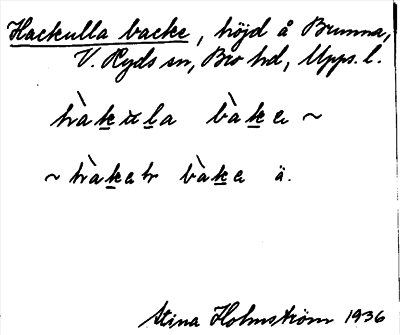 Hackulla backe, höjd å Brunna,
V. Ryds sn, Bro hd, Upps. l.
hàku̶la bàka ~
~ hàkar bàka ä.
Stina Holmström 1936